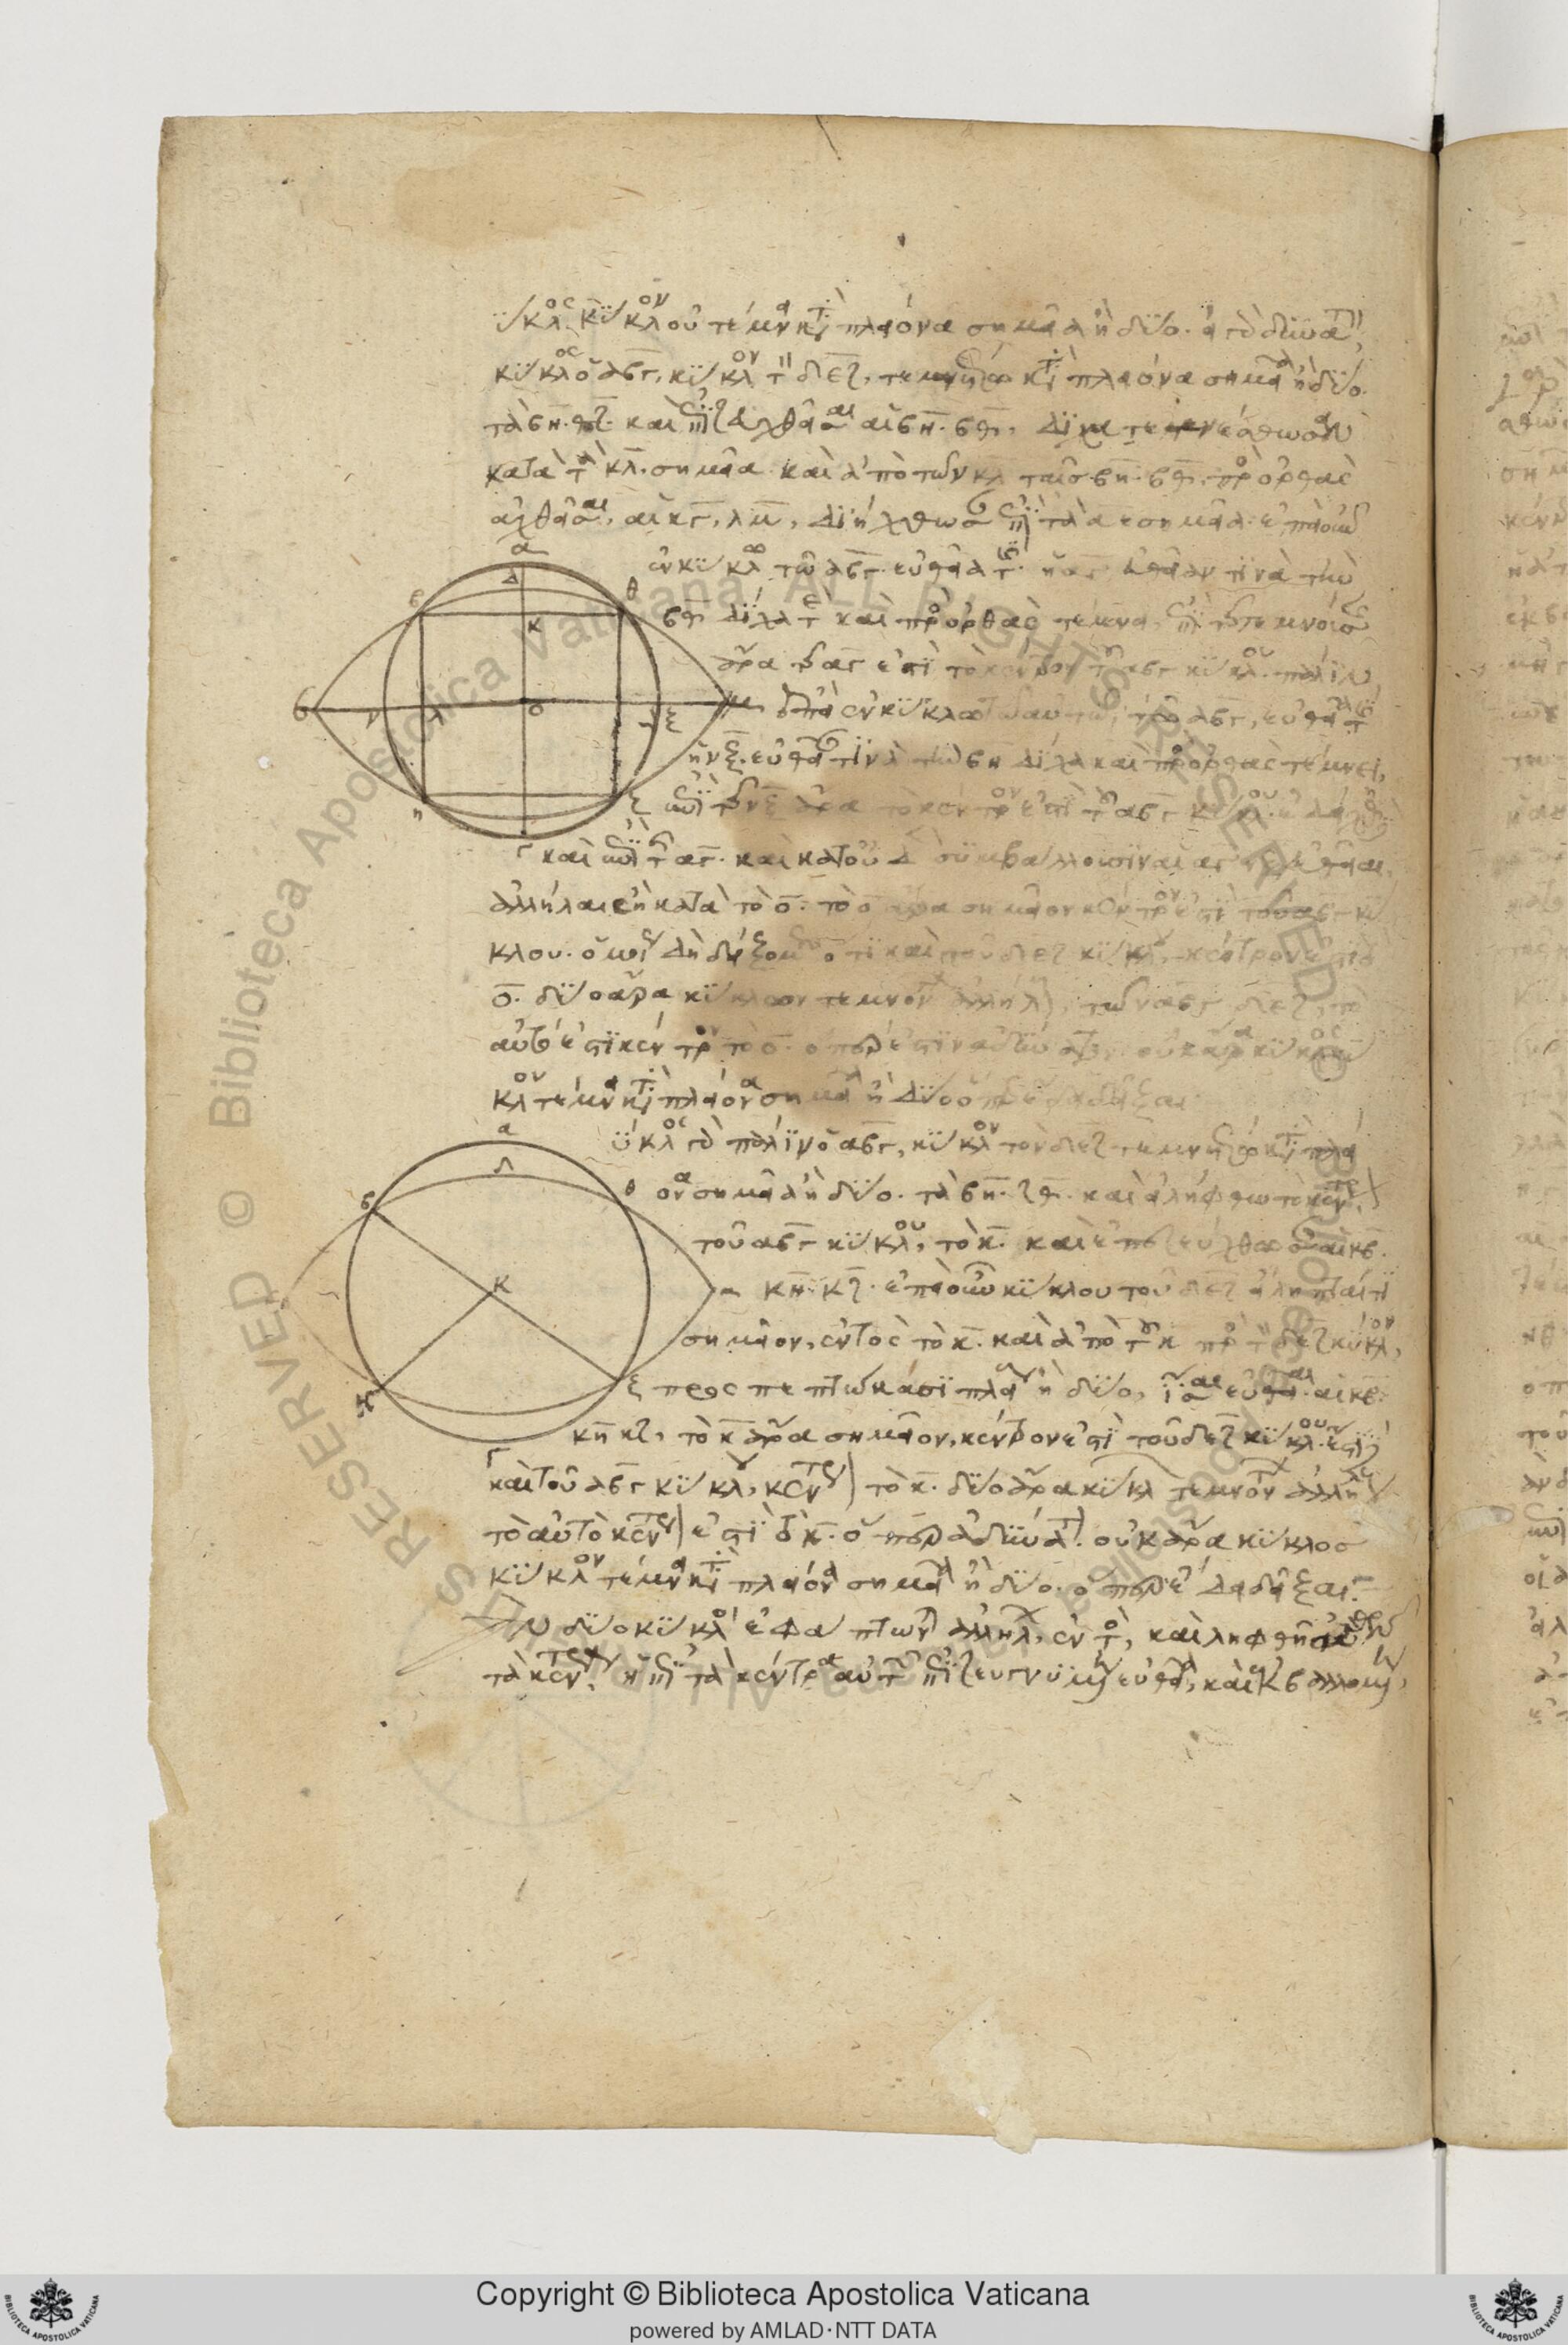 κύκλος κύκλον οὐ τέμνει κατὰ πλείονα σημεῖα ἢ δύο. εἰ γὰρ δυνατὸν,
κύκλος ὁ αβγ, κύκλον τὸν δεζ, τεμνέτω κατὰ πλείονα σημεῖα ἢ δύο.
τὰ βη. θζ. καὶ ἐπιζευχθεῖσαι αἱ βη. βθ. δίχα τετμήσθωσαν
κατὰ τὰ κλ. σημεῖα. καὶ ἀπὸ τῶν κλ ταῖς βη. βθ. πρὸς ὀρθὰς
ἀχθεῖσαι, αἱ κγ, λμ, διήχθωσαν ἐπὶ τὰ αε σημεῖα. ἐπεὶ οὖν
ἐν κύκλῳ τῷ αβγ. εὐθεῖα τις ἡ αγ εὐθεῖάν τινα τὴν
βθ δίχα τε καὶ πρὸς ὀρθὰς τέμνει, ἐπὶ τῆς
ἄρα τῆς αγ ἐστὶ τὸ κέντρον τοῦ αβγ κύκλου. πάλιν
ἐπεὶ ἐν κύκλῳ τῷ αὐτῷ, τῷ αβγ, εὐθεῖά τις
ἡ νξ. εὐθεῖάν τινα τὴν βη δίχα καὶ πρὸς ὀρθὰς τέμνει,
ἐπὶ τῆς νξ ἄρα τὸ κέντρον ἐστὶ τοῦ αβγ κύκλου.
καὶ ἐπὶ τῆς αγ. καὶ κατ' οὐδὲν συμβάλλουσιν αἱ αγ
ἀλλήλαις ἢ κατὰ τὸ ο. τὸ ο ἄρα σημεῖον κέντρον ἐστὶ τοῦ αβγ κύ
κλου. ὁμοίως δὴ δείξομεν ὅτι καὶ τοῦ δεζ κύκλου κέντρον ἐστὶ τὸ
ο. δύο ἄρα κύκλων τεμνόντων ἀλλήλους, τῶν αβγ δεζ, τὸ
αὐτό ἐστι κέντρον τὸ ο. ὅπερ ἐστὶν ἀδύνατον. οὐκ ἄρα κύκλος κύ
κλον τέμνει κατὰ πλείονα σημεῖα ἢ δύο ὅπερ ἔδει δεῖξαι
κύκλος γὰρ πάλιν ὁ αβγ, κύκλον τὸν δεζ τεμνέτω κατὰ πλεί
ονα σημεῖα ἢ δύο. τὰ βη. ζθ. καὶ εἰλήφθω τὸ κέντρον
τοῦ αβγ κύκλου, τὸ κ. καὶ ἐπεζεύχθωσαν αἱ κβ.
κη. κζ. ἐπεὶ οὖν κύκλου τοῦ δεζ εἴληπταί τι
σημεῖον, ἐντὸς τὸ κ. καὶ ἀπὸ τοῦ κ πρὸς τὸν δεζ κύκλον,
προς πεπτώκασι πλείους ἢ δύο, ἴσαι εὐθεῖαι. αἱ κβ.
κη κζ, τὸ κ ἄρα σημεῖον, κέντρον ἐστὶ τοῦ δεζ κύκλου. ἔστι
καὶ τοῦ αβγ κύκλου, κέντρον τὸ κ. δύο ἄρα κύκλων τεμνόντων ἀλλήλους
τὸ αὐτὸ κέντρον ἐστὶ τὸ κ. ὅπερ ἀδύνατον. οὐκ ἄρα κύκλος
κύκλον τέμνει κατὰ πλείονα σημεῖα ἢ δύο. ὅπερ ἔδει δεῖξαι.
δύο κύκλοι ἐφάπτωνται ἀλλήλων, ἐντὸς, καὶ ληφθῇ αὐτῶν
τὰ κέντρα. ἡ ἐπὶ τὰ κέντρα αὐτῶν ἐπιζευγνυμένη εὐθεῖα, καὶ ἐκβαλλομένη,
Copyright © Biblioteca Apostolica Vaticana
powered by AMLAD·NTT DATA